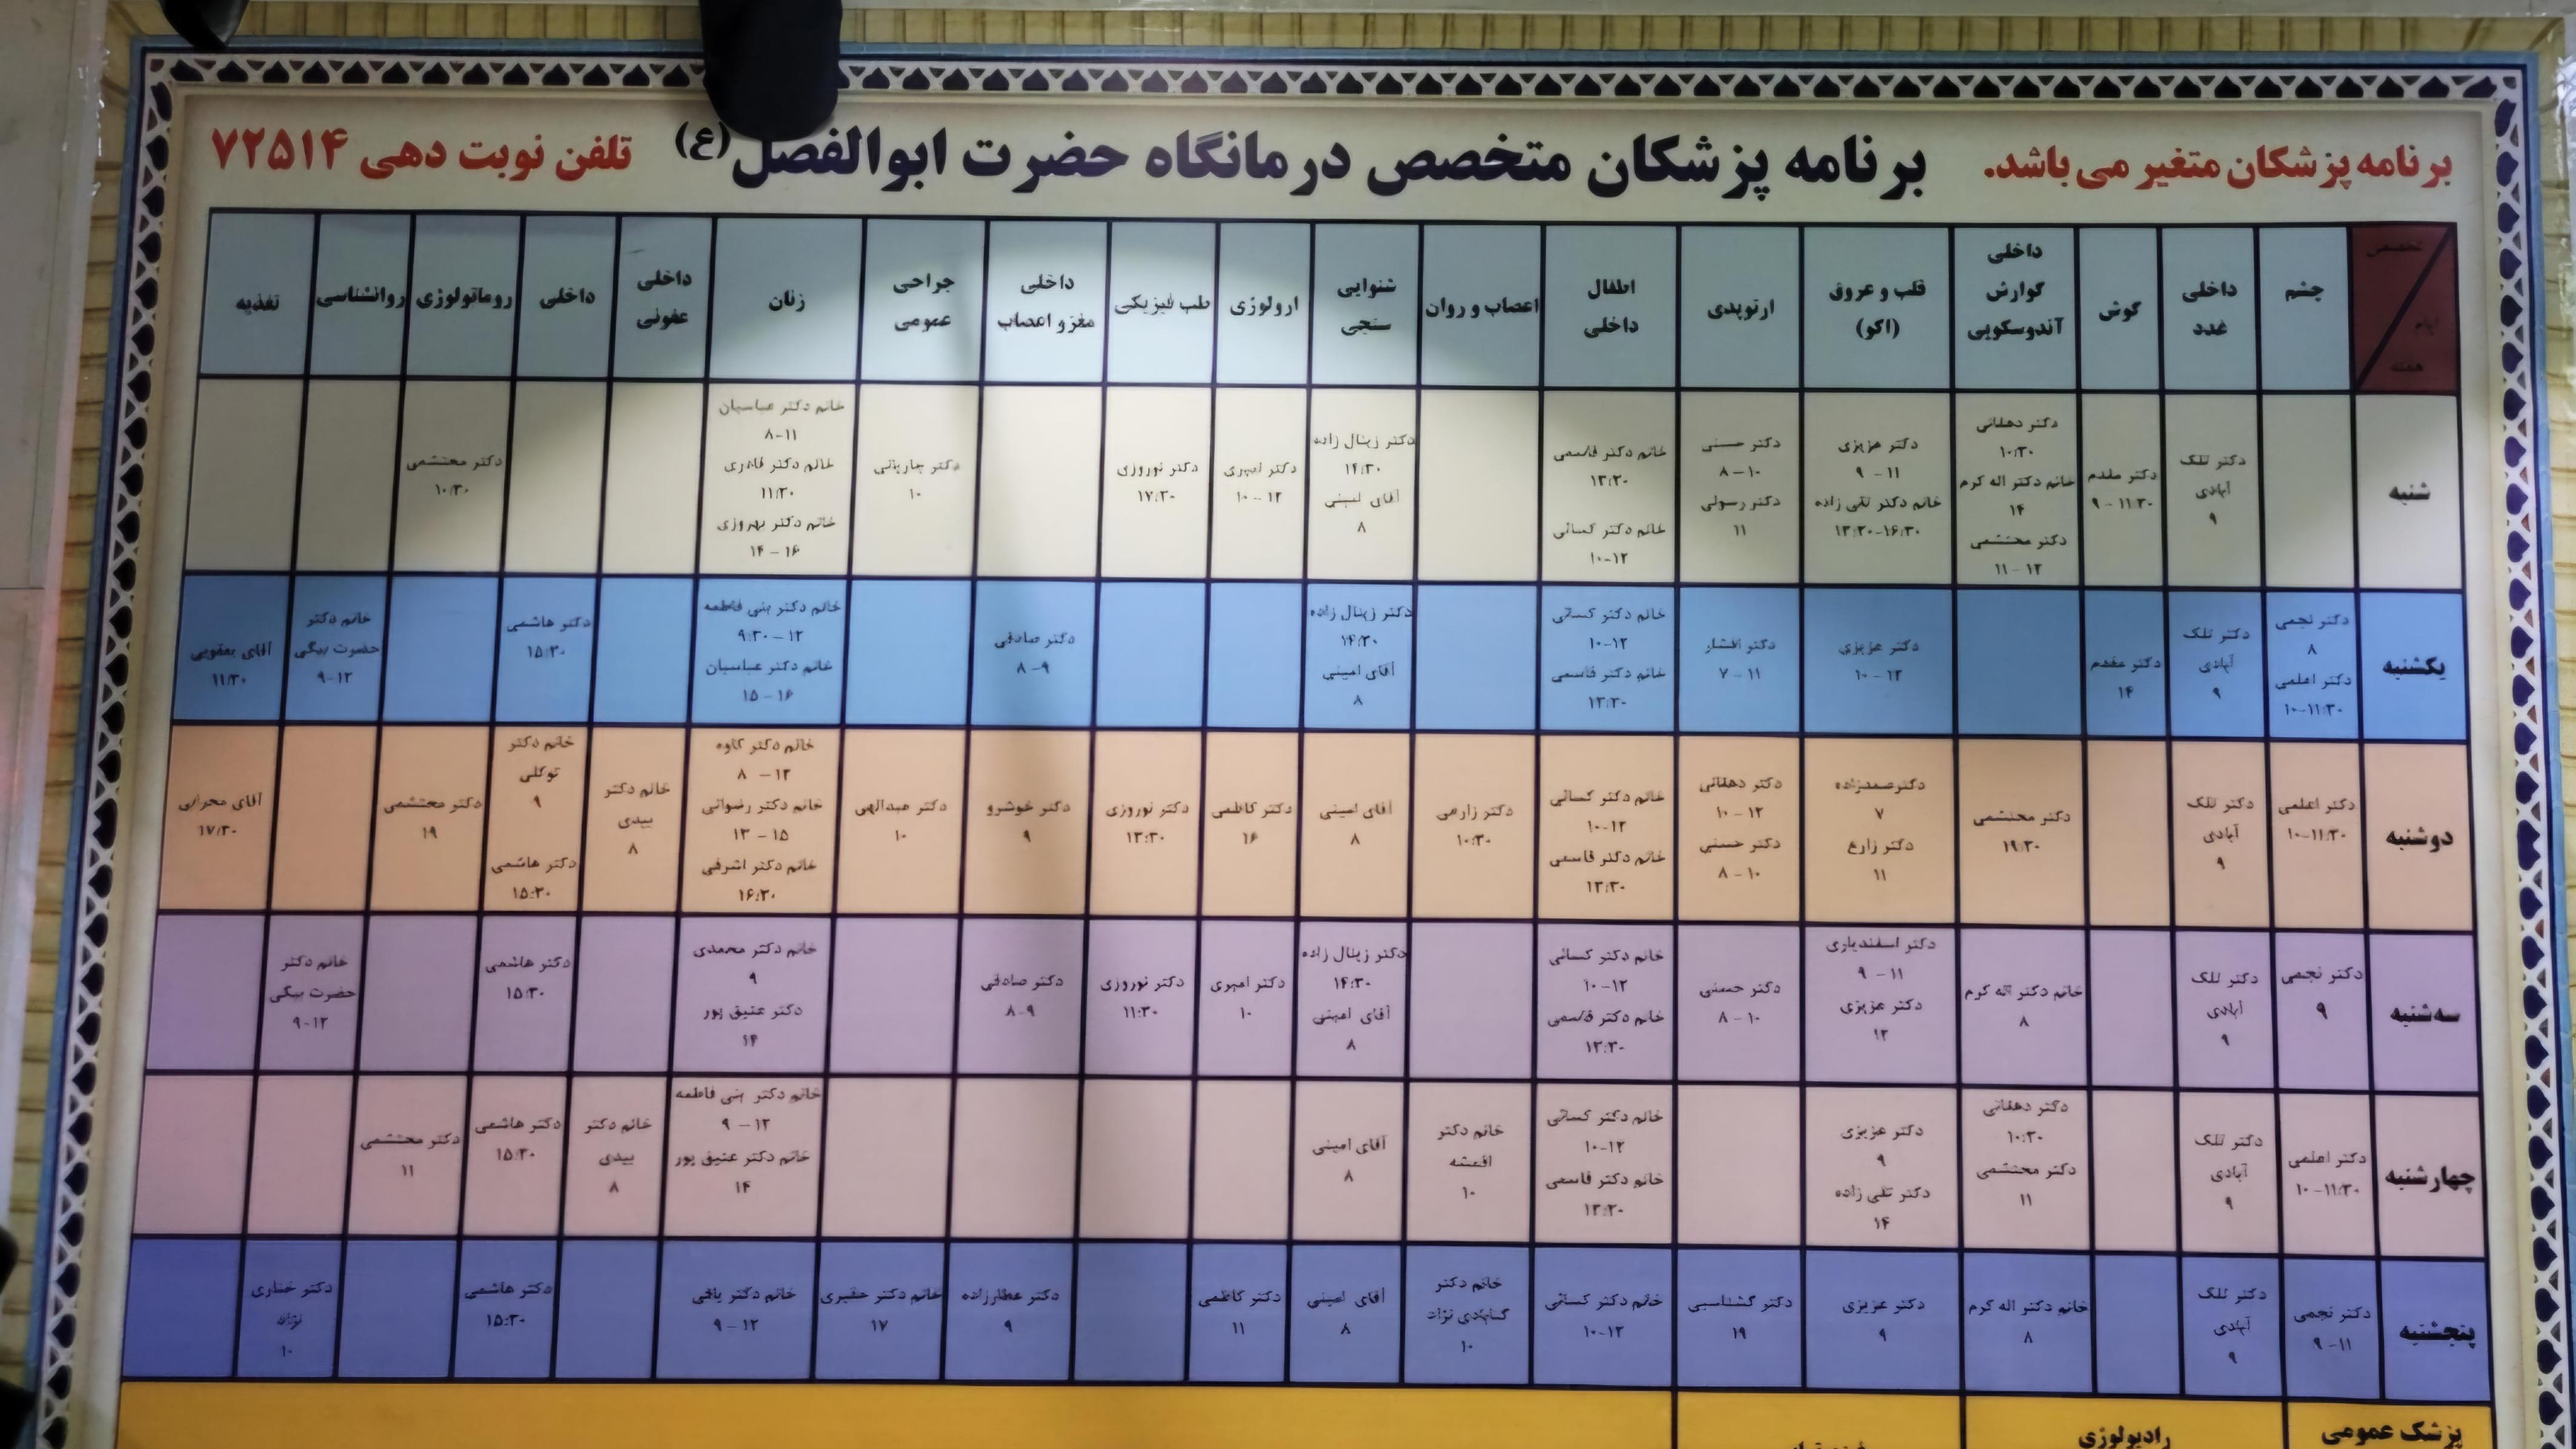 برنامه پزشکان متغیر می باشد.
برنامه پزشکان متخصص درمانگاه حضرت ابوالفضل (ع)
تلفن نوبت دهی ۷۲۵۱۴
تخصص
ایام
هفته
چشم
داخلی
غدد
گوش
داخلی
گوارش
آندوسکوپی
قلب و عروق
(اکو)
ارتوپدی
اطفال
داخلی
اعصاب و روان
شنوایی
سنجی
ارولوژی
طب فیزیکی
داخلی
مغز و اعصاب
جراحی
عمومی
زنان
داخلی
عفونی
داخلی
روماتولوژی
روانشناسی
تغذیه
شنبه
دکتر تلک
آبادی
۹
دکتر مقدم
۹ - ۱۱:۳۰
دکتر دهقانی
۱۰:۳۰
خانم دکتر اله کرم
۱۴
دکتر محتشمی
۱۱ - ۱۲
دکتر عزیزی
۹ - ۱۱
خانم دکتر تقی زاده
۱۳:۳۰-۱۶:۳۰
دکتر حسنی
۸ - ۱۰
دکتر رسولی
۱۱
خانم دکتر قاسمی
۱۳:۳۰
خانم دکتر کسائی
۱۰-۱۲
دکتر زینال زاده
۱۴:۳۰
آقای امینی
۸
دکتر امیری
۱۰ - ۱۲
دکتر نوروزی
۱۷:۳۰
۱۰
خانم دکتر عباسیان
۸-۱۱
خانم دکتر قادری
۱۱:۳۰
خانم دکتر بهروزی
۱۴ - ۱۶
دکتر محتشمی
۱۰:۳۰
یکشنبه
دکتر نجمی
۸
دکتر اعلمی
۱۰-۱۱:۳۰
دکتر تلک
آبادی
۹
دکتر مقدم
۱۴
دکتر عزیزی
۱۰ - ۱۲
دکتر افشار
۷ - ۱۱
خانم دکتر کسائی
۱۰-۱۲
خانم دکتر قاسمی
۱۳:۳۰
دکتر زینال زاده
۱۴:۳۰
آقای امینی
۸
دکتر صادقی
۸ -۹
خانم دکتر بنی فاطمه
۹:۳۰ - ۱۲
خانم دکتر عباسیان
۱۵ - ۱۶
دکتر هاشمی
۱۵:۳۰
خانم دکتر
حضرت بیگی
۹-۱۲
آقای یعقوبی
۱۱:۳۰
دوشنبه
دکتر اعلمی
۱۰-۱۱:۳۰
دکتر تلک
آبادی
۹
دکتر محتشمی
۱۹:۳۰
دکتر صمدزاده
۷
دکتر زارع
۱۱
دکتر دهقانی
۱۰ - ۱۲
دکتر حسنی
۸ - ۱۰
خانم دکتر کسائی
۱۰-۱۲
خانم دکتر قاسمی
۱۳:۳۰
دکتر زارعی
۱۰:۳۰
آقای امینی
۸
دکتر کاظمی
۱۶
دکتر نوروزی
۱۳:۳۰
دکتر خوشرو
۹
دکتر عبدالهی
۱۰
خانم دکتر کاوه
۸ - ۱۲
خانم دکتر رضوانی
۱۳ - ۱۵
خانم دکتر اشرفی
۱۶:۳۰
خانم دکتر
بیدی
۸
خانم دکتر
توکلی
۹
دکتر هاشمی
۱۵:۳۰
دکتر محتشمی
۱۹
آقای محرابی
۱۷:۳۰
سه شنبه
دکتر نجمی
۹
دکتر تلک
آبادی
۹
خانم دکتر اله کرم
۸
دکتر اسفندیاری
۹ - ۱۱
دکتر عزیزی
۱۲
دکتر حسنی
۸ - ۱۰
خانم دکتر کسائی
۱۰-۱۲
خانم دکتر قاسمی
۱۳:۳۰
دکتر زینال زاده
۱۴:۳۰
آقای امینی
۸
دکتر امیری
۱۰
دکتر نوروزی
۱۱:۳۰
دکتر صادقی
۸-۹
خانم دکتر محمدی
۹
دکتر عتیق پور
۱۴
دکتر هاشمی
۱۵:۳۰
خانم دکتر
حضرت بیگی
۹-۱۲
چهارشنبه
دکتر اعلمی
۱۰ -۱۱:۳۰
دکتر تلک
آبادی
۹
دکتر دهقانی
۱۰:۳۰
دکتر محتشمی
۱۱
دکتر عزیزی
۹
دکتر تقی زاده
۱۴
خانم دکتر کسائی
۱۰-۱۲
خانم دکتر قاسمی
۱۳:۳۰
خانم دکتر
اقمشه
۱۰
آقای امینی
۸
خانم دکتر بنی فاطمه
۹ - ۱۲
خانم دکتر عتیق پور
۱۴
خانم دکتر
بیدی
۸
دکتر هاشمی
۱۵:۳۰
دکتر محتشمی
۱۱
پنجشنبه
دکتر نجمی
۹ -۱۱
دکتر تلک
آبادی
۹
خانم دکتر اله کرم
۸
دکتر عزیزی
۹
دکتر گشتاسبی
۱۹
خانم دکتر کسائی
۱۰-۱۲
خانم دکتر
۱۰
آقای امینی
۸
دکتر کاظمی
۱۱
دکتر عطارزاده
۹
خانم دکتر حقیری
۱۷
خانم دکتر یافی
۹ - ۱۲
دکتر هاشمی
۱۵:۳۰
دکتر ختاری
نژاد
۱۰
پزشک عمومی
رادیولوژی